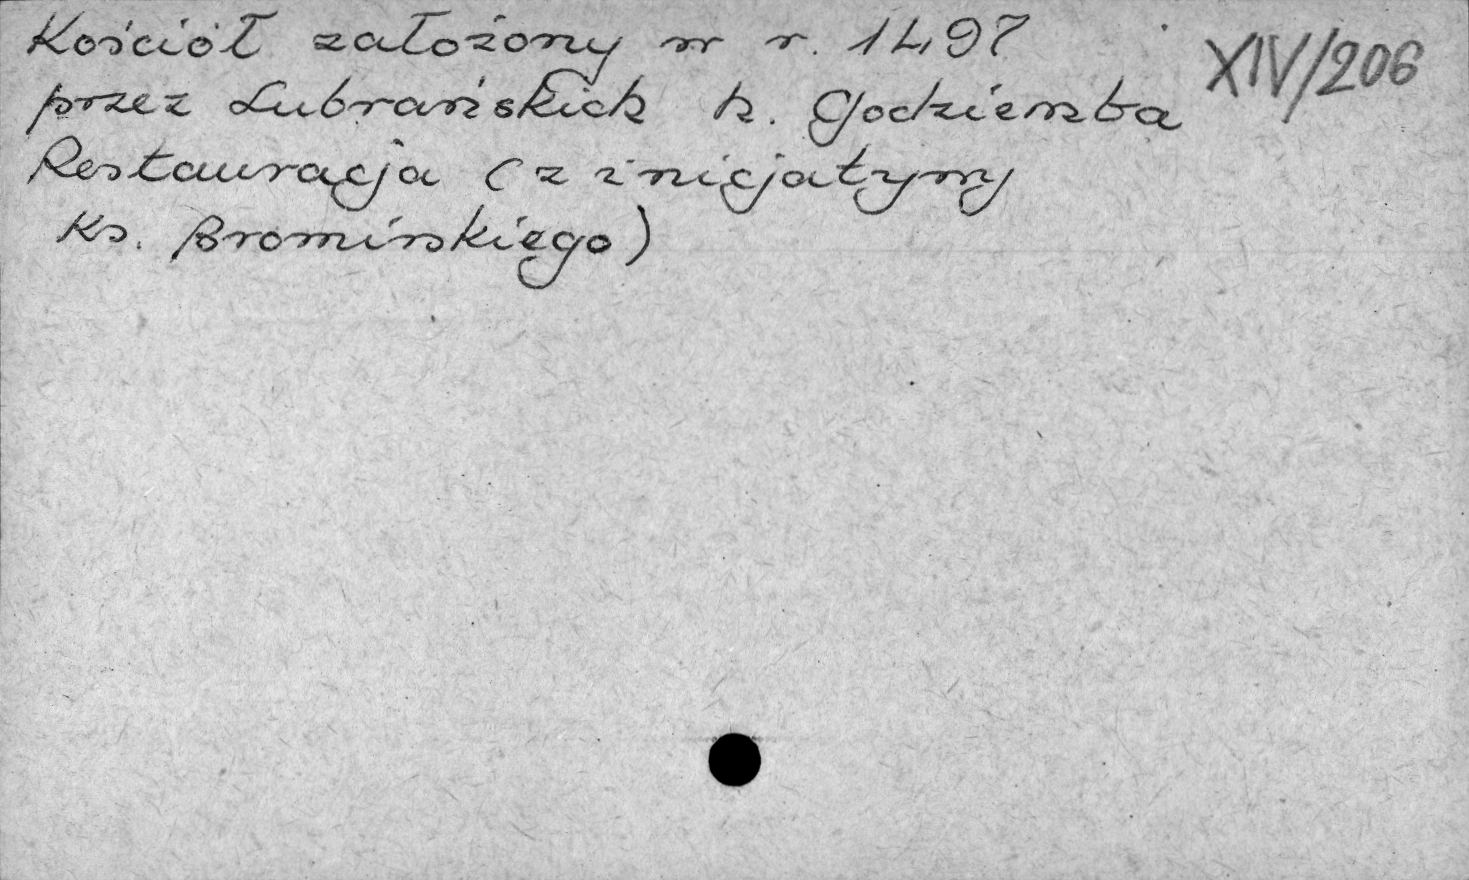 Kościół założony w r. 1497
XIV/206
przez Lubrańskich h. Godziemba
Restauracja (z inicjatywy
Ks. Bromińskiego)